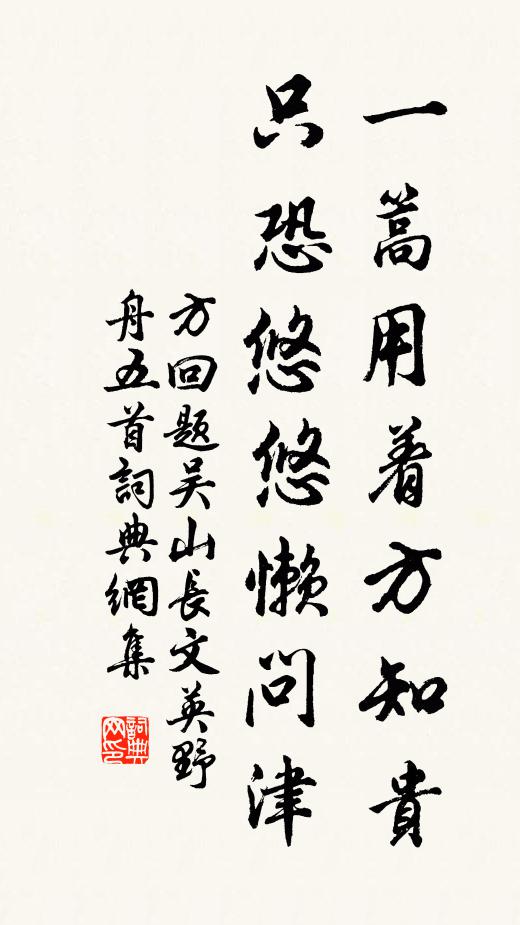 一篙用着方知貴
只恐悠悠懶問津
方回題吴山長文英野
舟五首詞典網集
詞典网印